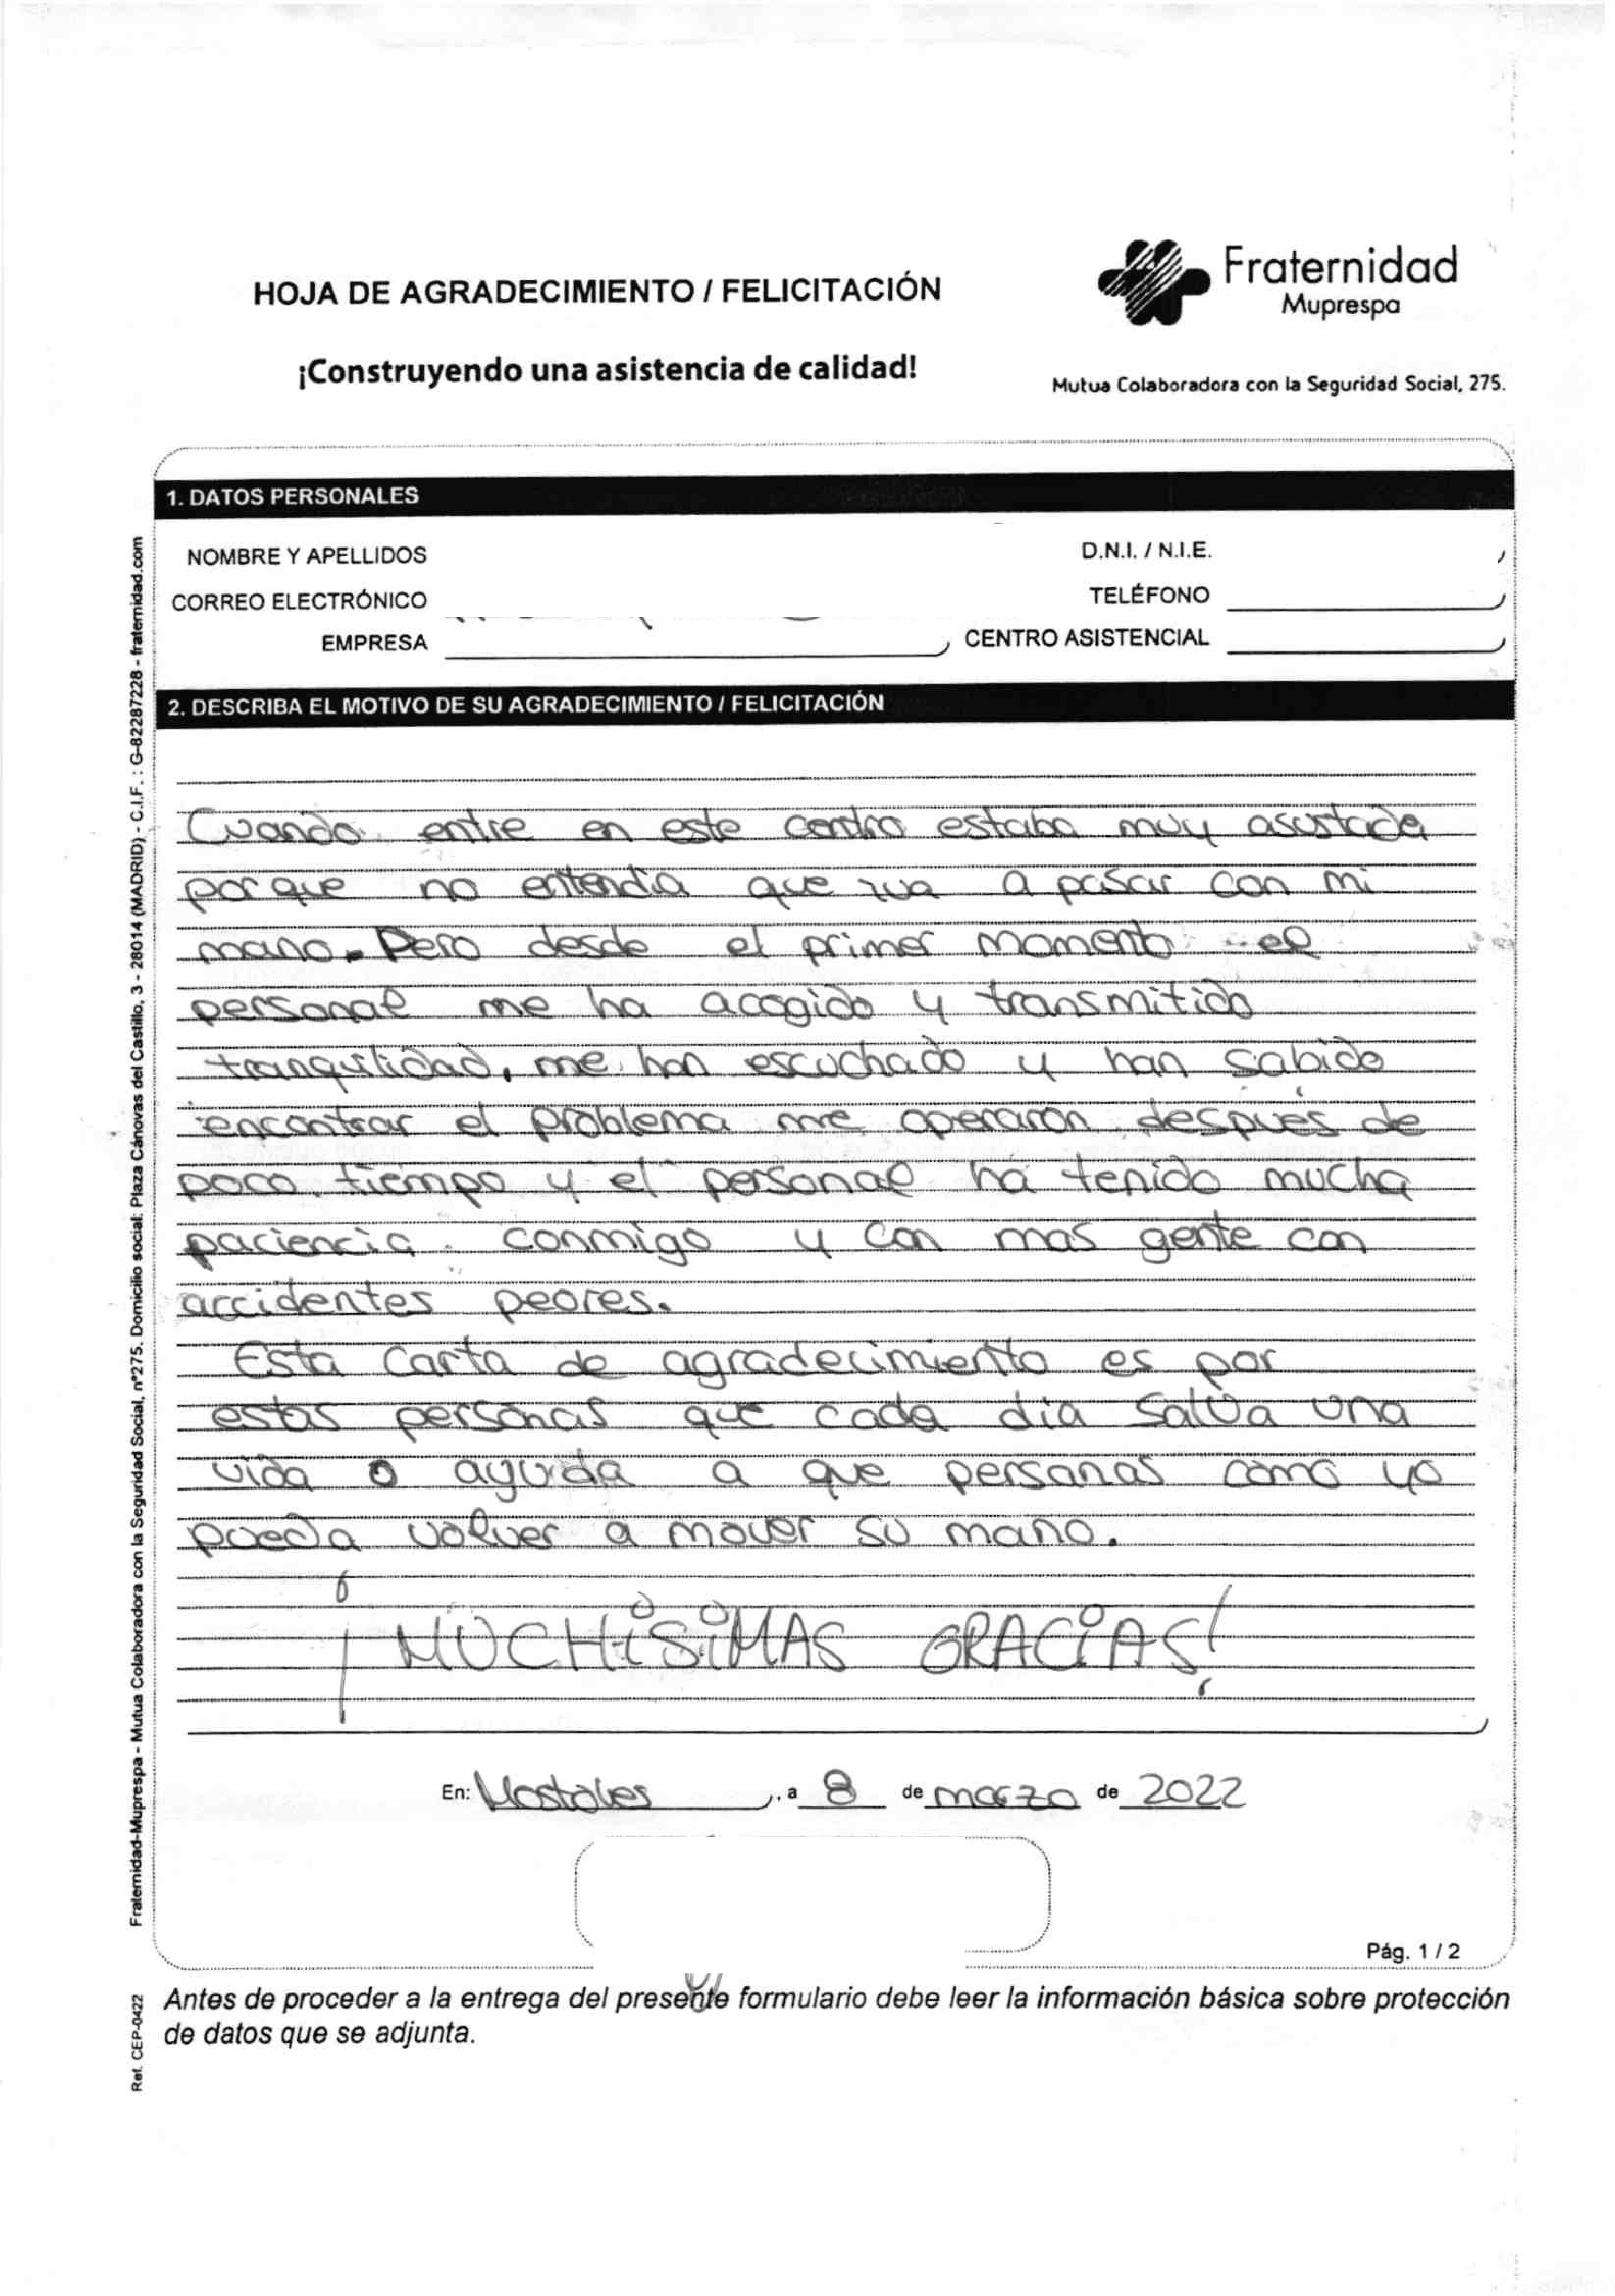 HOJA DE AGRADECIMIENTO / FELICITACIÓN
¡Construyendo una asistencia de calidad!
Fraternidad
Muprespa
Mutua Colaboradora con la Seguridad Social, 275.
1. DATOS PERSONALES
NOMBRE Y APELLIDOS
D.N.I. / N.I.E.
CORREO ELECTRÓNICO
TELÉFONO
EMPRESA
CENTRO ASISTENCIAL
2. DESCRIBA EL MOTIVO DE SU AGRADECIMIENTO / FELICITACIÓN
Cuando entre en este centro estaba muy asustada
porque no entendia que iva a pasar con mi
mano. Pero desde el primer momento el
personal me ha acogido y transmitido
tranquilidad, me han escuchado y han sabido
encontrar el problema me operaron después de
poco tiempo y el personal ha tenido mucha
paciencia conmigo y con mas gente con
accidentes peores.
Esta carta de agradecimiento es por
estas personas que cada dia salva una
vida o ayuda a que personas como yo
pueda volver a mover su mano.
¡MUCHiSiMAS GRACiAS!
En: Mostoles, a 8 de marzo de 2022
Pág. 1 / 2
Antes de proceder a la entrega del presente formulario debe leer la información básica sobre protección
de datos que se adjunta.
Fraternidad-Muprespa - Mutua Colaboradora con la Seguridad Social, nº275. Domicilio social: Plaza Cánovas del Castillo, 3 - 28014 (MADRID) - C.I.F. : G-82287228 - fraternidad.com
Ref. CEP-0422